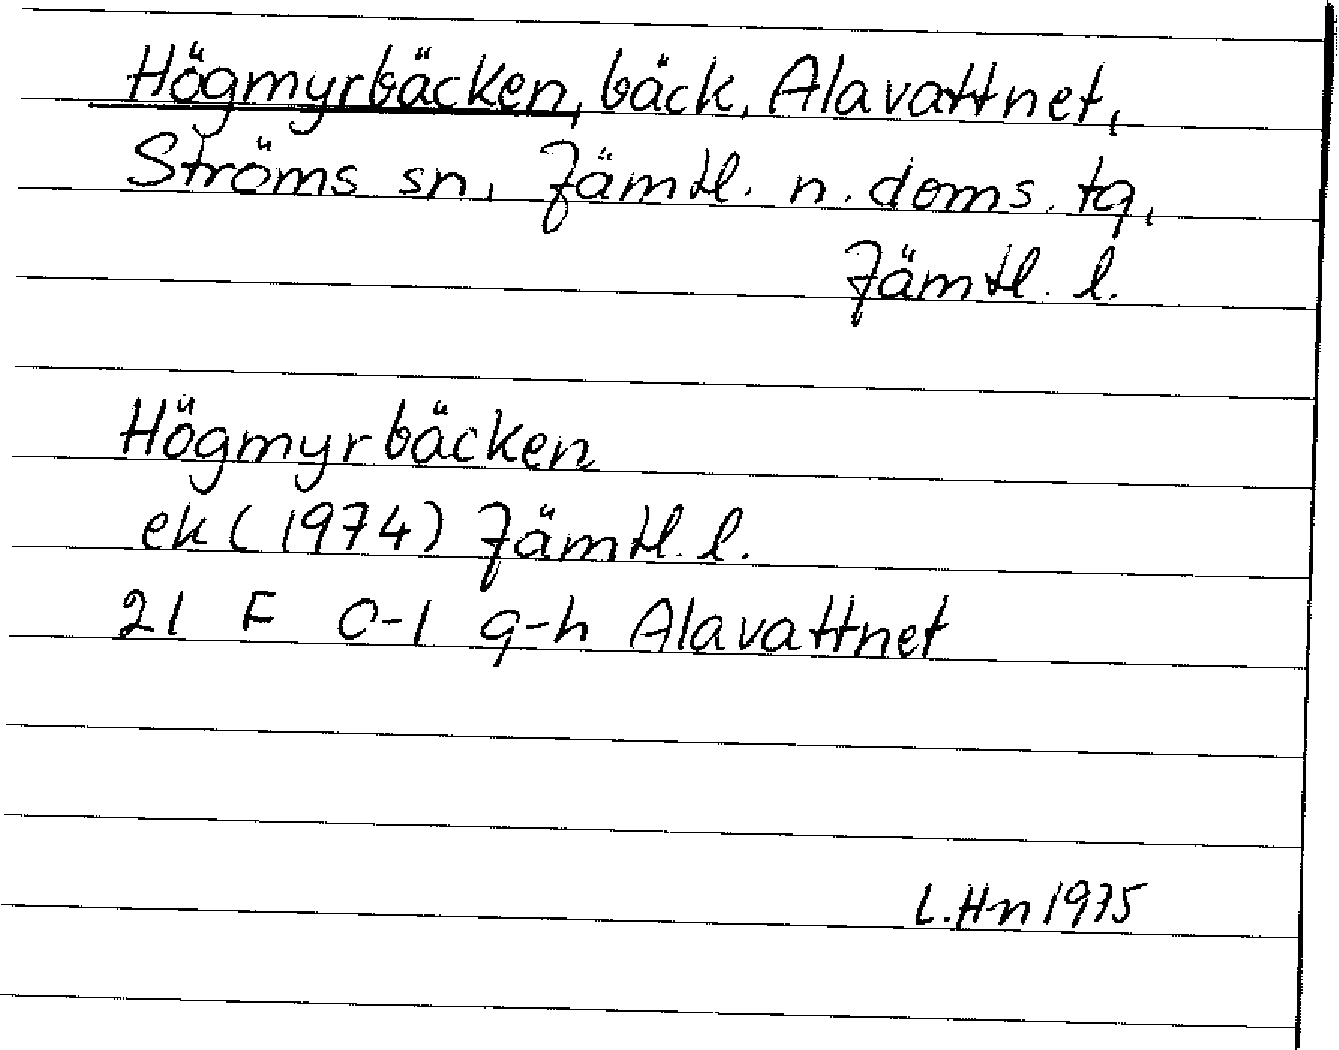 Högmyrbäcken, bäck, Alavattnet,
Ströms sn, Jämtl. n. doms. tg,
Jämtl. l.
Högmyrbäcken
ek (1974) Jämtl. l.
21 F 0-1 g-h Alavattnet
L. Hn 1975